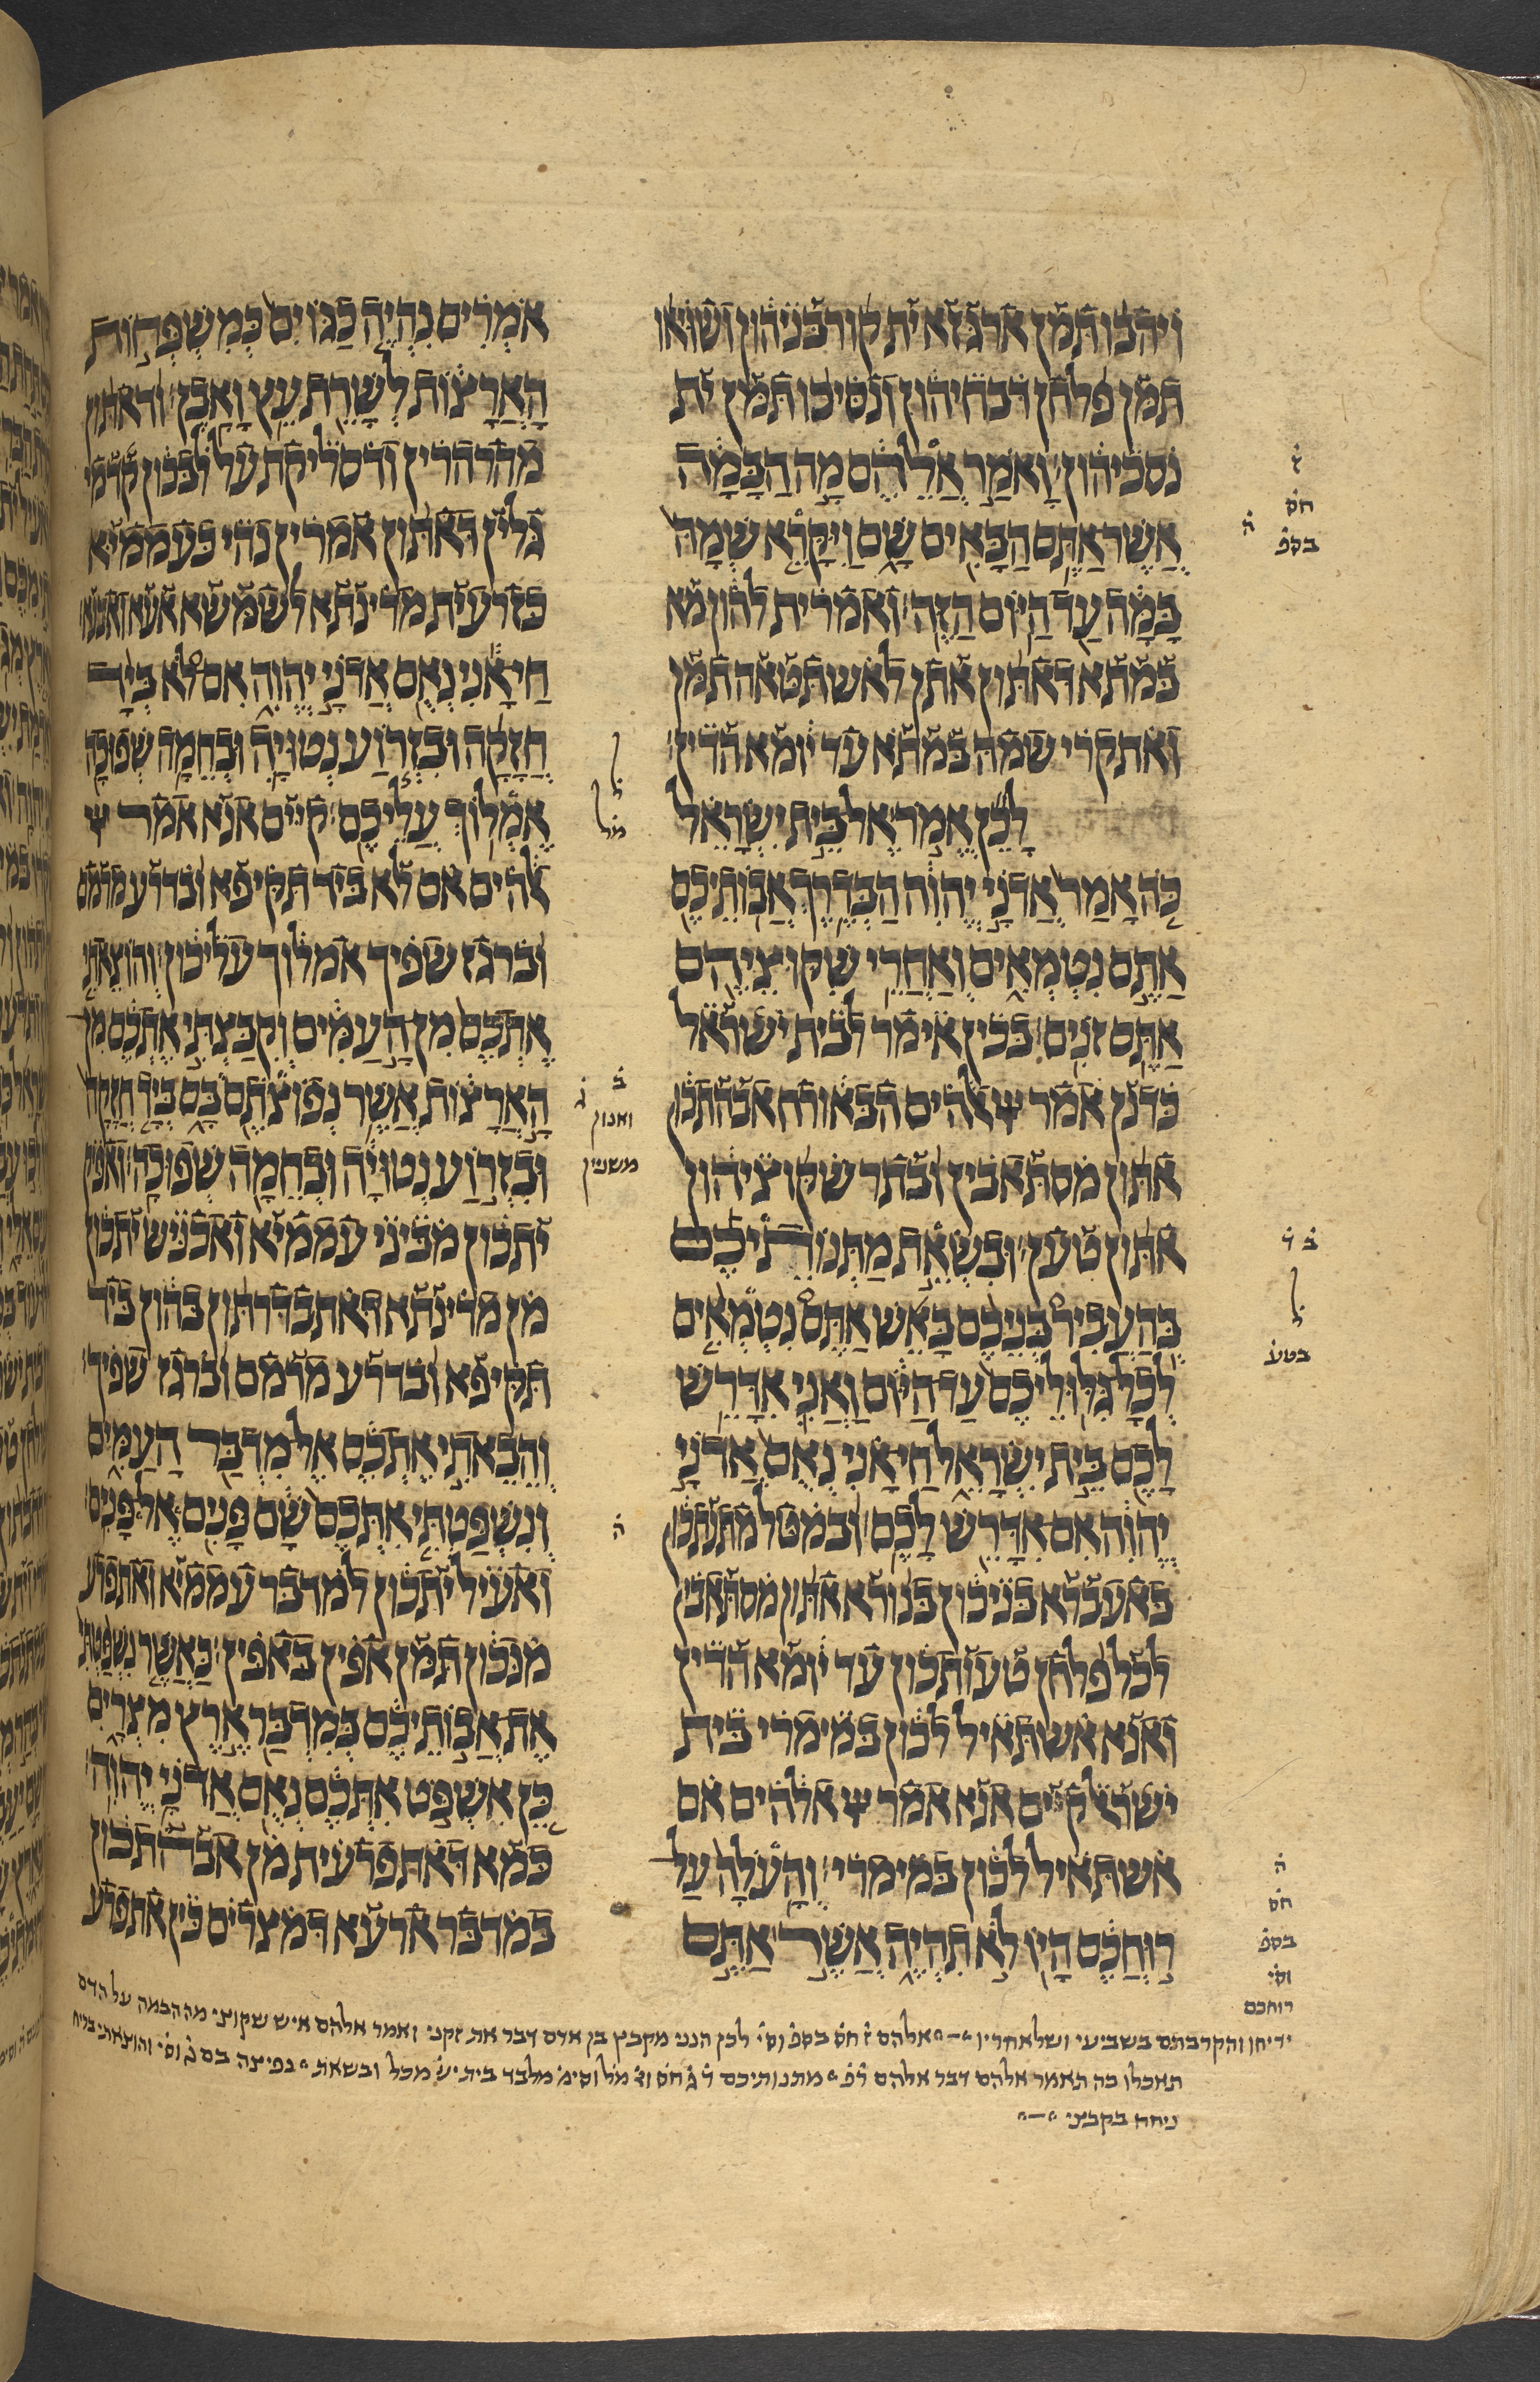 ויהבו תמן ארגזא ית קורבניהון ושויאו
תמן פלחן דבחיהון ונסיכו תמן ית
נסכיהון ואמר אלהם מה הבמה
אשר אתם הבאים שם ויקרא שמה
במה עד היום הזה ואמרית להון מא
במתא דאתון אתן לאשתטאה תמן
ואתקרי שמה במתא עד יומא הדין
לכן אמר אל בית ישראל
כה אמר אדני יהוה הבדרך אבותיכם
אתם נטמאים ואחרי שקוציהם
אתם זנים בכין אימר לבית ישראל
כדנן אמר אלהים הבאורח אבהתכון
אתון מסתאבין ובתר שקוציהון
אתון טען ובשאת מתנותיכם
בהעביר בניכם באש אתם נטמאים
לכל גלוליכם עד היום ואני אדרש
לכם בית ישראל חי אני נאם אדני
יהוה אם אדרש לכם ובמטל מתנתכון
באעברא בניכון בנורא אתון מסתאבין
לכל פלחן טעותכון עד יומא הדין
ואנא אשתאיל לכון במימרי בית
ישראל קיים אנא אמר אלהים אם
אשתאיל לכון במימרי והעלה על
רוחכם היו לא תהיה אשר אתם
אמרים נהיה כגוים כמשפחות
הארצות לשרת עץ ואבן ודאתון
מהרהרין ודסליקת על לבכון קדמי
גלין דאתון אמרין נהי כעממיא
כזרעית מדינתא לשמשא אעא ואבנא
חי אני נאם אדני יהוה אם לא ביד
חזקה ובזרוע נטויה ובחמה שפוכה
אמלוך עליכם קיים אנא אמר
אלהים אם לא ביד תקיפא ובדרע מרמם
וברגז שפיך אמלוך עליכון והוצאתי
אתכם מן העמים וקבצתי אתכם מן
הארצות אשר נפוצתם בם ביד חזקה
ובזרוע נטויה ובחמה שפוכה ואפיק
יתכון מביני עממיא ואכניש יתכון
מן מדינתא דאתבדרתון בהון ביד
תקיפא ובדרע מרמם וברגז שפיך
והבאתי אתכם אל מדבר העמים
ונשפטתי אתכם שם פנים אל פנים
ואעיל יתכון למדבר עממיא ואתפרע
מנכון תמן אפין באפין כאשר נשפטתי
את אבותיכם במדבר ארץ מצרים
כן אשפט אתכם נאם אדני יהוה
כמא דאתפרעית מן אבהתכון
במדבר ארעא דמצרים כין אתפרע
ז
חס
בספ
ה
ל
מל
ב
ג
ואנון
משנין
ב ד
ל
בטע
ה
ה
חס
בספ
וסי
רוחכם
יריחו והקרבתם בשביעי ושלאחריו אלהם ז חס בספ וסי לכן הנני מקבץ בן אדם דבר את זקני ואמר אלהם איש שקוצי מה הבמה על הדם
תאכלו כה תאמר אלהם דבר אלהם מתנותיכם ד ג חס וד מל וסימ מלבד בית יש מכל ובשאת נפיצה בם ג וסי והוצאתי בריח
ניחח בקבצי